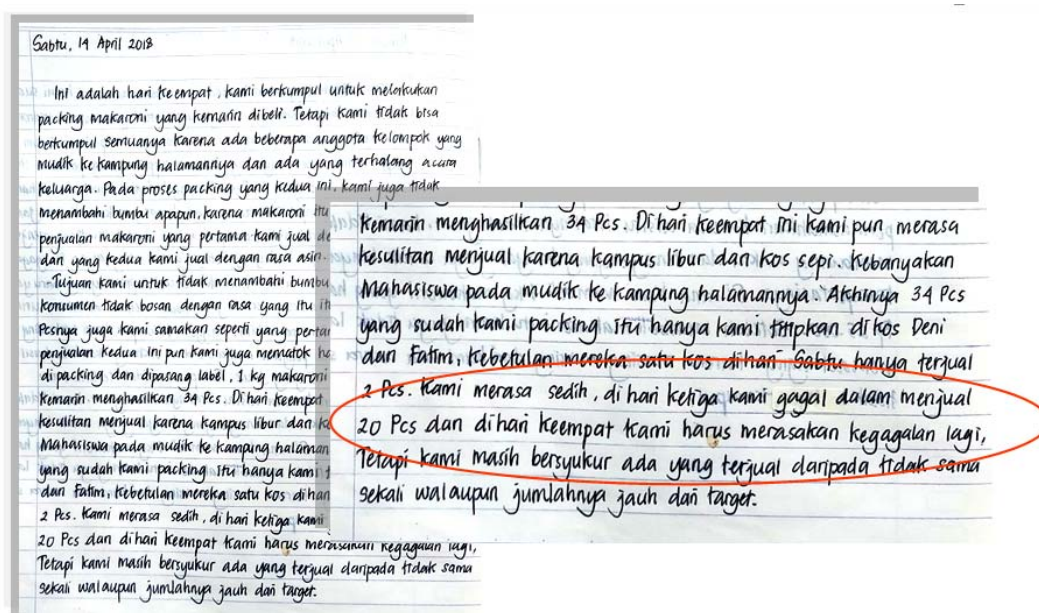 Sabtu, 14 April 2018
Ini adalah hari keempat, kami berkumpul untuk melakukan
packing makaroni yang kemarin dibeli. Tetapi kami tidak bisa
berkumpul semuanya karena ada beberapa anggota kelompok yang
mudik ke kampung halamannya dan ada yang terhalang acara
keluarga. Pada proses packing yang kedua ini, kami juga tidak
menambahi bumbu apapun, karena makaroni itu
penjualan makaroni yang pertama kami jual de
dan yang kedua kami jual dengan rasa asin.
Tujuan kami untuk tidak menambahi bumbu
konsumen tidak bosan dengan rasa yang itu it
Pcsnya juga kami samakan seperti yang pertar
penjualan kedua ini pun kami juga mematok ha
di packing dan dipasang label, 1 kg makaroni
kemarin menghasilkan 34 Pcs. Di hari keempat
kesulitan menjual karena kampus libur dan k
Mahasiswa pada mudik ke kampung halaman
yang sudah kami packing itu hanya kami t
dan Fatim, kebetulan mereka satu kos di han
2 Pcs. Kami merasa sedih, di hari ketiga kami
20 Pcs dan di hari keempat kami harus merasakan kegagalan lagi,
Tetapi kami masih bersyukur ada yang terjual daripada tidak sama
sekali walaupun jumlahnya jauh dari target.
kemarin menghasilkan 34 Pcs. Di hari keempat ini kami pun merasa
kesulitan menjual karena kampus libur dan kos sepi. Kebanyakan
Mahasiswa pada mudik ke kampung halamannya. Akhirnya 34 Pcs
yang sudah kami packing itu hanya kami titipkan di kos Deni
dan Fatim, kebetulan mereka satu kos di hari Sabtu hanya terjual
2 Pcs. Kami merasa sedih, di hari ketiga kami gagal dalam menjual
20 Pcs dan di hari keempat kami harus merasakan kegagalan lagi,
Tetapi kami masih bersyukur ada yang terjual daripada tidak sama
sekali walaupun jumlahnya jauh dari target.